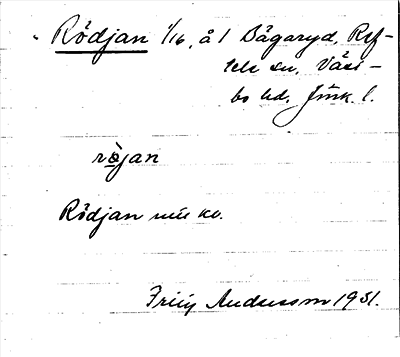 Rödjan 1/16, å 1 Bågaryd, Ryf-
tele sn, Väst-
bo hd. Jönk. l.
röjan
Rödjan min ko.
Andersson 1931.